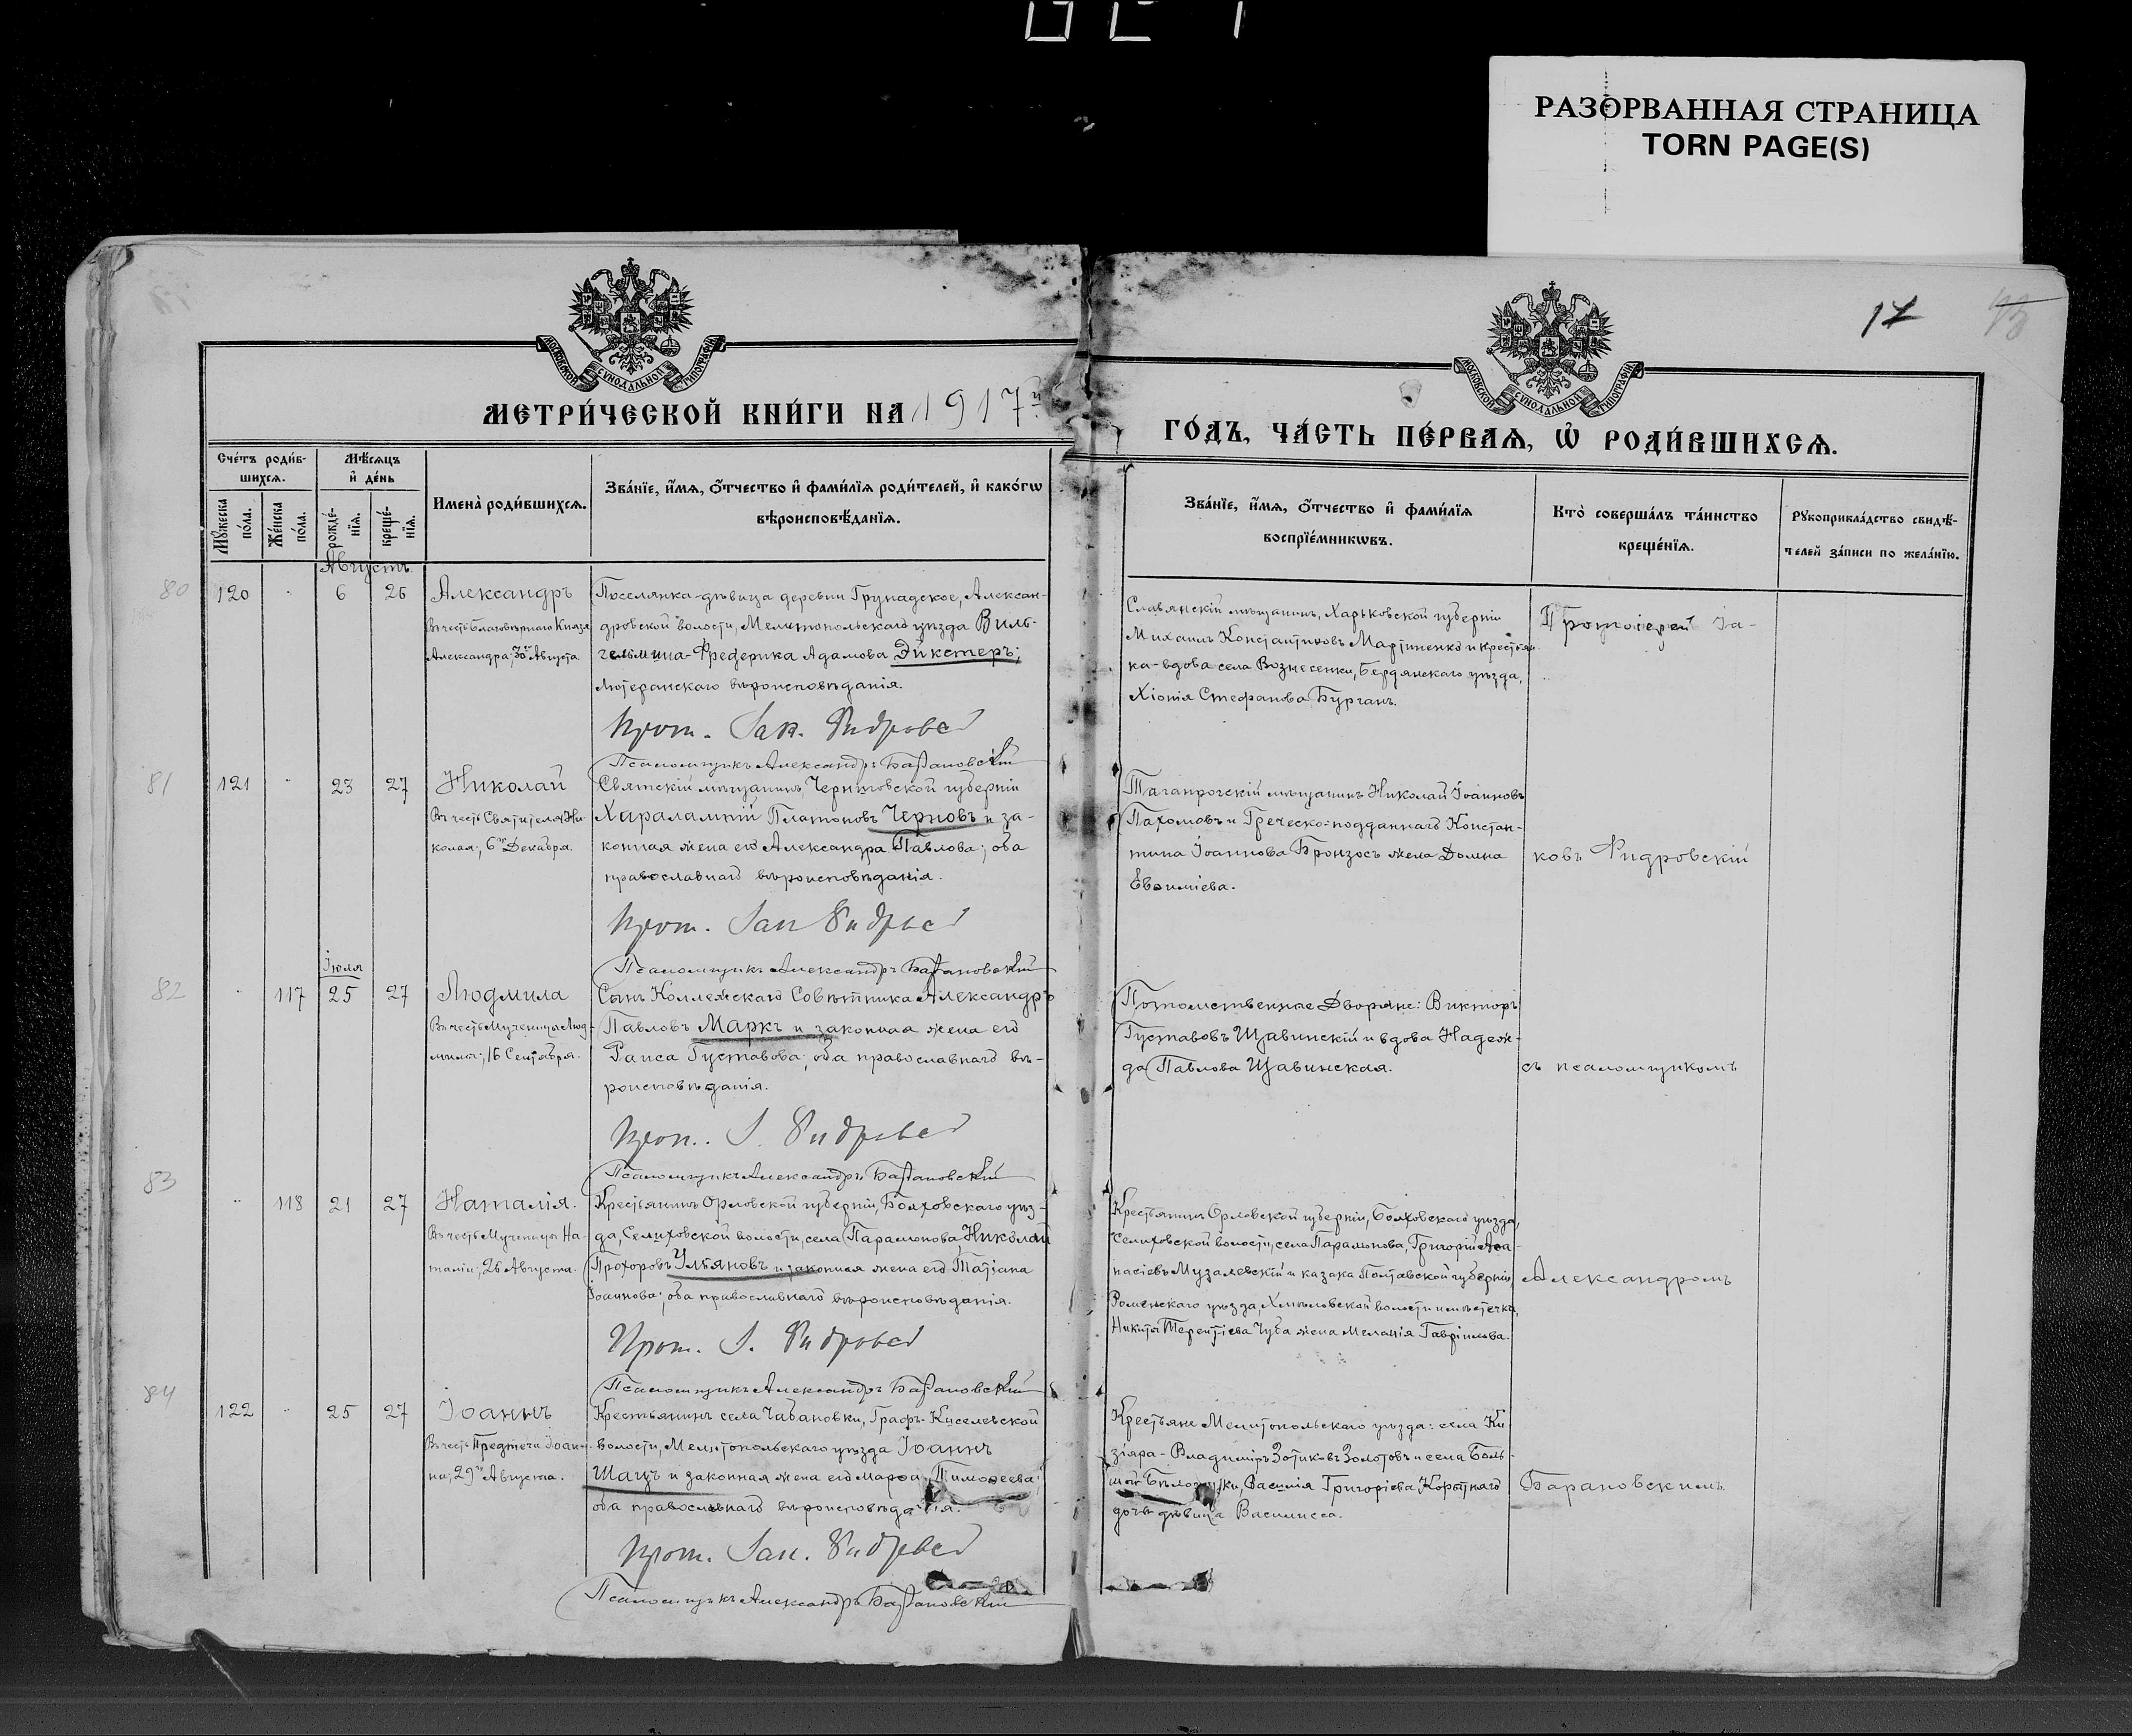 РАЗОРВАННАЯ СТРАНИЦА
TORN PAGE(S)
17
МОСКОВСКОЙ СУНОДАЛЬНОЙ ТИПОГРАФІИ
МОСКОВСКОЙ СУНОДАЛЬНОЙ ТИПОГРАФІИ
МЕТРИ́ЧЕСКОЙ КНИ́ГИ НА 1917й
ГО́ДЪ, ЧА́СТЬ ПЕ́РВАѦ, Ѡ҆ РОДИ́ВШИХСѦ.
Сче́тъ роди́в-
шихсѧ.
Мꙋ́жеска по́ла.
Же́нска по́ла.
Мѣ́сѧцъ
и҆ де́нь
рожде́-нїѧ.
креще́-нїѧ.
Имена̀ роди́вшихсѧ.
Зва́нїе, и҆́мѧ, ѻ҆́тчество и҆ фами́лїѧ роди́телей, и҆ како́гѡ
вѣроисповѣ́данїѧ.
Зва́нїе, и҆́мѧ, ѻ҆́тчество и҆ фами́лїѧ
воспрїе́мникѡвъ.
Кто̀ соверша́лъ та́инство
креще́нїѧ.
Рꙋкоприкла́дство свидѣ́-
телей за́писи по жела́нїю.
Августъ
80 120 - 6 26 Александръ
Въ честь Благовѣрнаго Князя
Александра; 30го Августа
Поселянка-дѣвица деревни Грунадское, Алексан-
дровской волости, Мелитопольскаго уѣзда Виль-
гельмина-Фредерика Адамова Эйкстеръ;
лютеранскаго вѣроисповѣданія.
Псаломщикъ Александръ Барановскій
Славянскій мѣщанинъ, Харьковской губерніи
Михаилъ Константиновъ Мартиненко и крестьян-
ка-вдова села Вознесенки, Бердянскаго уѣзда,
Хіонія Стефанова Бурганъ.
Протоіерей Іа-
81 121 - 23 27 Николай
Въ честь Святителя Ни-
колая; 6го Декабря.
Святскій мѣщанинъ, Черниговской губерніи
Харалампій Платоновъ Черновъ и за-
конная жена его Александра Павлова; оба
православнаго вѣроисповѣданія.
Псаломщикъ Александръ Барановскій
Таганрогскій мѣщанинъ Николай Іоанновъ
Пахомовъ и Греческо-подданнаго Констан-
тина Іоаннова Бронзосъ жена Домна
Евѳиміева.
ковъ Фидровскій
Іюля
82 - 117 25 27 Людмила
Въ честь Мученицы Люд-
милы; 16 Сентября.
Сынъ Коллежскаго Совѣтника Александръ
Павловъ Маркъ и законная жена его
Раиса Густавова; оба православнаго вѣ-
роисповѣданія.
Псаломщикъ Александръ Барановскій
Потомственные Дворяне: Викторъ
Густавовъ Щавинскій и вдова Надеж-
да Павлова Щавинская.
съ псаломщикомъ
83 - 118 21 27 Наталія.
Въ честь Мученицы На-
таліи; 26 Августа.
Крестьянинъ Орловской губерніи, Болховскаго уѣз-
да, Селиховской волости, села Парамонова, Николай
Прохоровъ Ульяновъ и законная жена его Татіана
Іоаннова; оба православнаго вѣроисповѣданія.
Псаломщикъ Александръ Барановскій
Крестьянинъ Орловской губерніи, Болховскаго уѣзда,
Селиховской волости, села Парамонова, Григорій Аѳа-
насіевъ Музалевскій и казака Полтавской губерніи
Роменскаго уѣзда, Хмѣловской волости и мѣстечка,
Никиты Терентіева Чуба жена Меланія Гавріилова.
Александромъ
84 122 - 25 27 Іоаннъ
Въ честь Предтечи Іоан-
на; 29го Августа.
Крестьянинъ села Чабановки, Графъ-Киселевской
волости, Мелитопольскаго уѣзда Іоаннъ
Шацъ и законная жена его Марѳа Тимоѳеева;
оба православнаго вѣроисповѣданія.
Псаломщикъ Александръ Барановскій
Крестьяне Мелитопольскаго уѣзда: села Ки
зіяра - Владиміръ Зотиковъ Золотовъ и села Боль-
шой Бѣлозерки, Василія Григоріева Кортнаго
дочь дѣвица Василисса.
Барановскимъ.